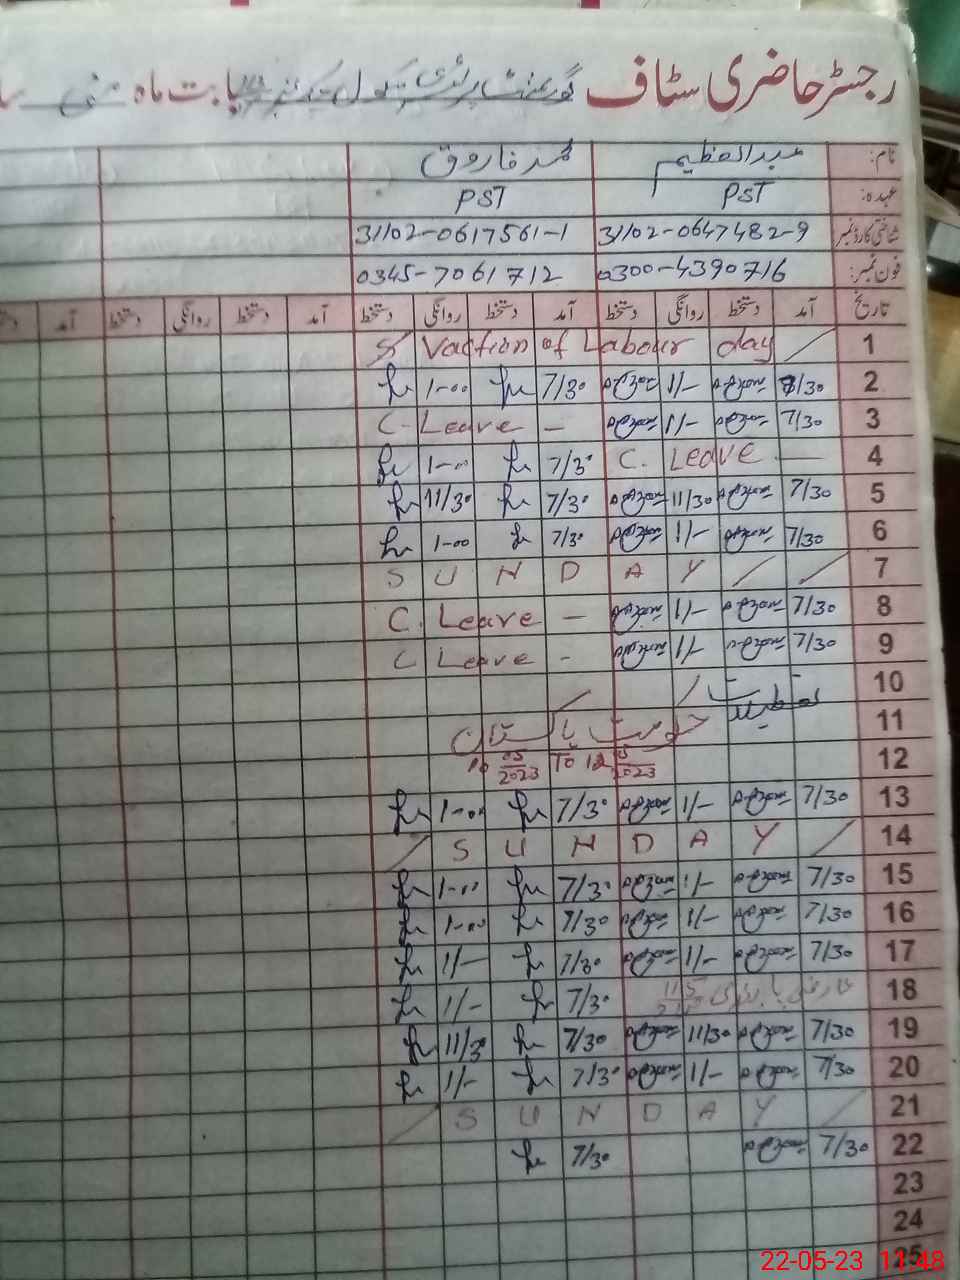 رجسٹر حاضری سٹاف گورنمنٹ پرائمری سکول بابت ماہ مئی
نام: عبدالعظیم محمد فاروق
عہدہ: PST PST
شناختی کارڈ نمبر 31102-0647482-9 31102-0617561-1
فون نمبر: 0300-4390716 0345-7061712
تاریخ آمد دستخط روانگی دستخط آمد دستخط روانگی دستخط آمد دستخط روانگی دستخط آمد
1 Vaction of Labour day
2 7/30 1/- 7/30 1-00
3 7/30 1/- C. Leave -
4 C. Leave 7/30 1-00
5 7/30 11/30 7/30 11/30
6 7/30 1/- 7/30 1-00
7 SUNDAY
8 7/30 1/- C. Leave -
9 7/30 1/- C Leave -
10 تعطیلات
11 حکومت پاکستان
12 10 05/2023 To 12 05/2023
13 7/30 1/- 7/30 1-00
14 SUNDAY
15 7/30 1/- 7/30 1-00
16 7/30 1/- 7/30 1-00
17 7/30 1/- 7/30 1/-
18 7/30 1/-
19 7/30 11/30 7/30 11/30
20 7/30 1/- 7/30 1/-
21 SUNDAY
22 7/30 7/30
23
24
25
22-05-23 11:48